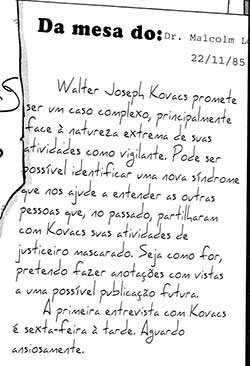 Da mesa do: Dr. Malcolm L
22/11/85
Walter Joseph Kovacs promete
ser um caso complexo, principalmente
face à natureza extrema de suas
atividades como vigilante. Pode ser
possível identificar uma nova síndrome
que nos ajude a entender as outras
pessoas que, no passado, partilharam
com Kovacs suas atividades de
justiceiro mascarado. Seja como for,
pretendo fazer anotações com vistas
a uma possível publicação futura.
A primeira entrevista com Kovacs
é sexta-feira à tarde. Aguardo
ansiosamente.